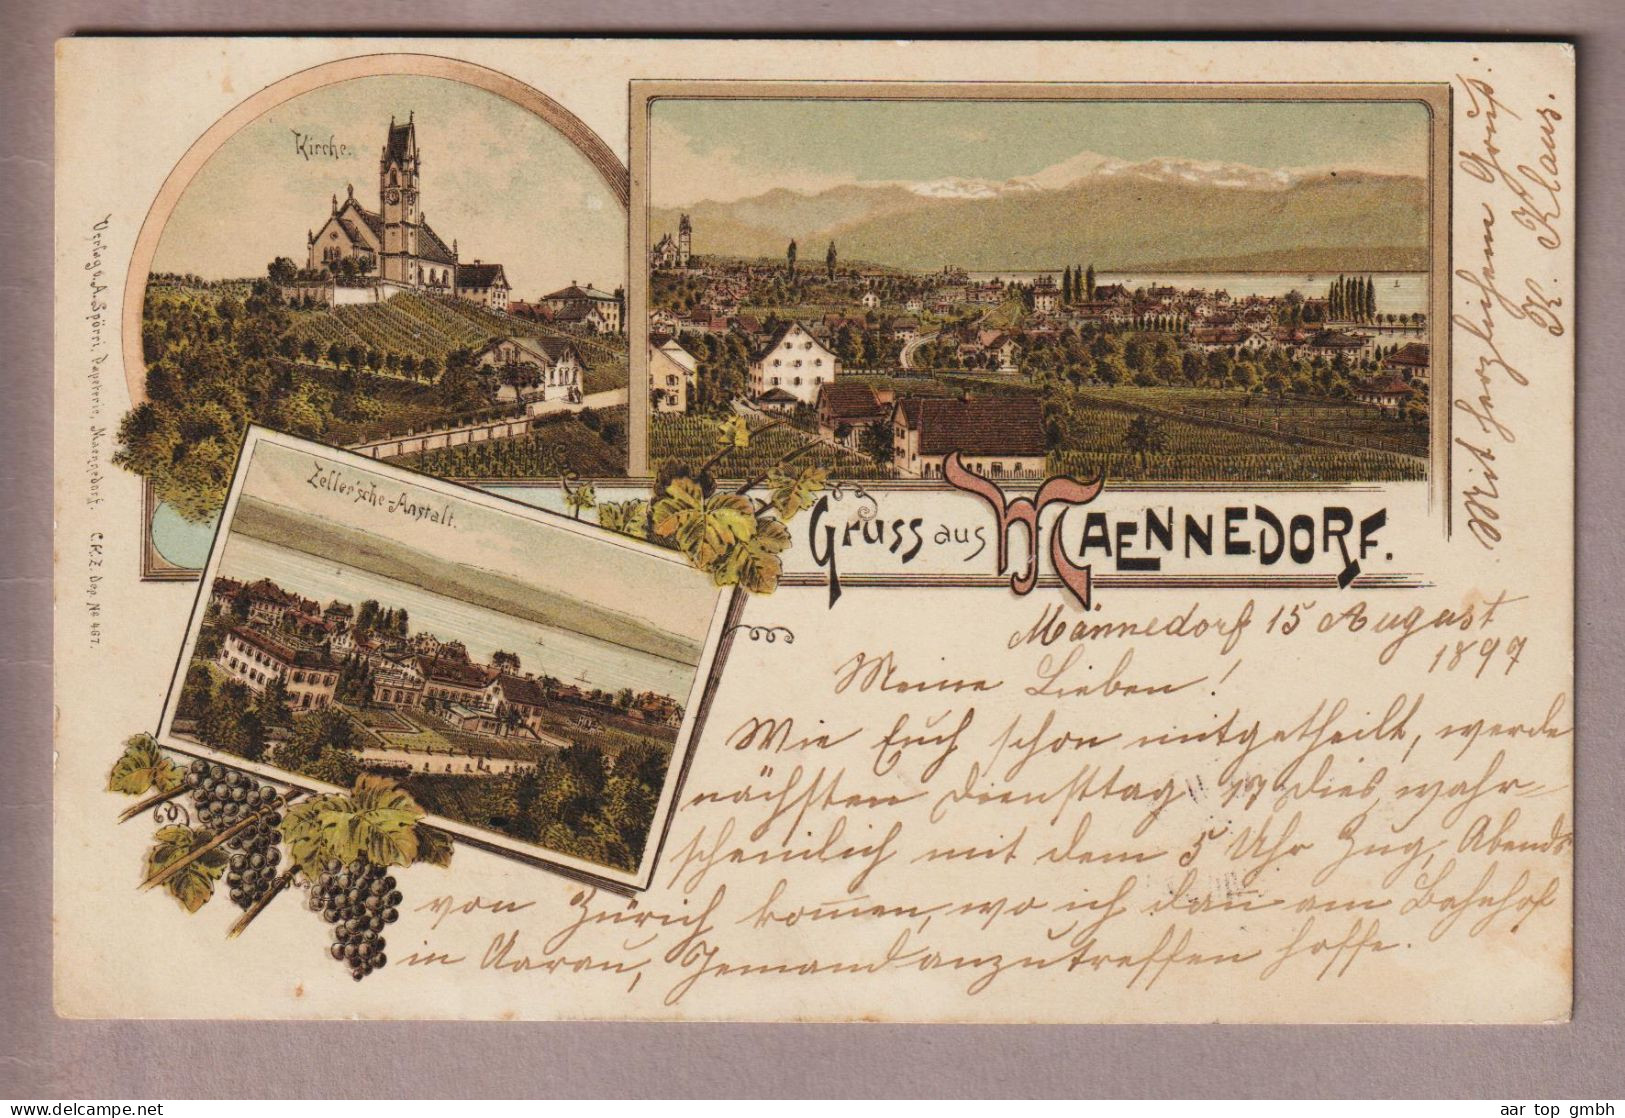 Kirche.
Zeller'sche-Anstalt.
Gruss aus MAENNEDORF.
Verlag v. A. Spörri, Papeterie, Maennedorf. C.K.Z. Dep. № 467.
Männedorf 15 August
1897
Meine Lieben!
Wie Euch schon mitgetheilt, werde
nächsten Diensttag 17 dies, wahr-
scheinlich mit dem 5 Uhr Zug, Abends
von Zürich kom̄en, wo ich dan̄ am Bahnhof
in Aarau, Jemand anzutreffen hoffe.
Mit herzlichem Gruß.
K. Klaus.
aar top gmbh
www.delcampe.net